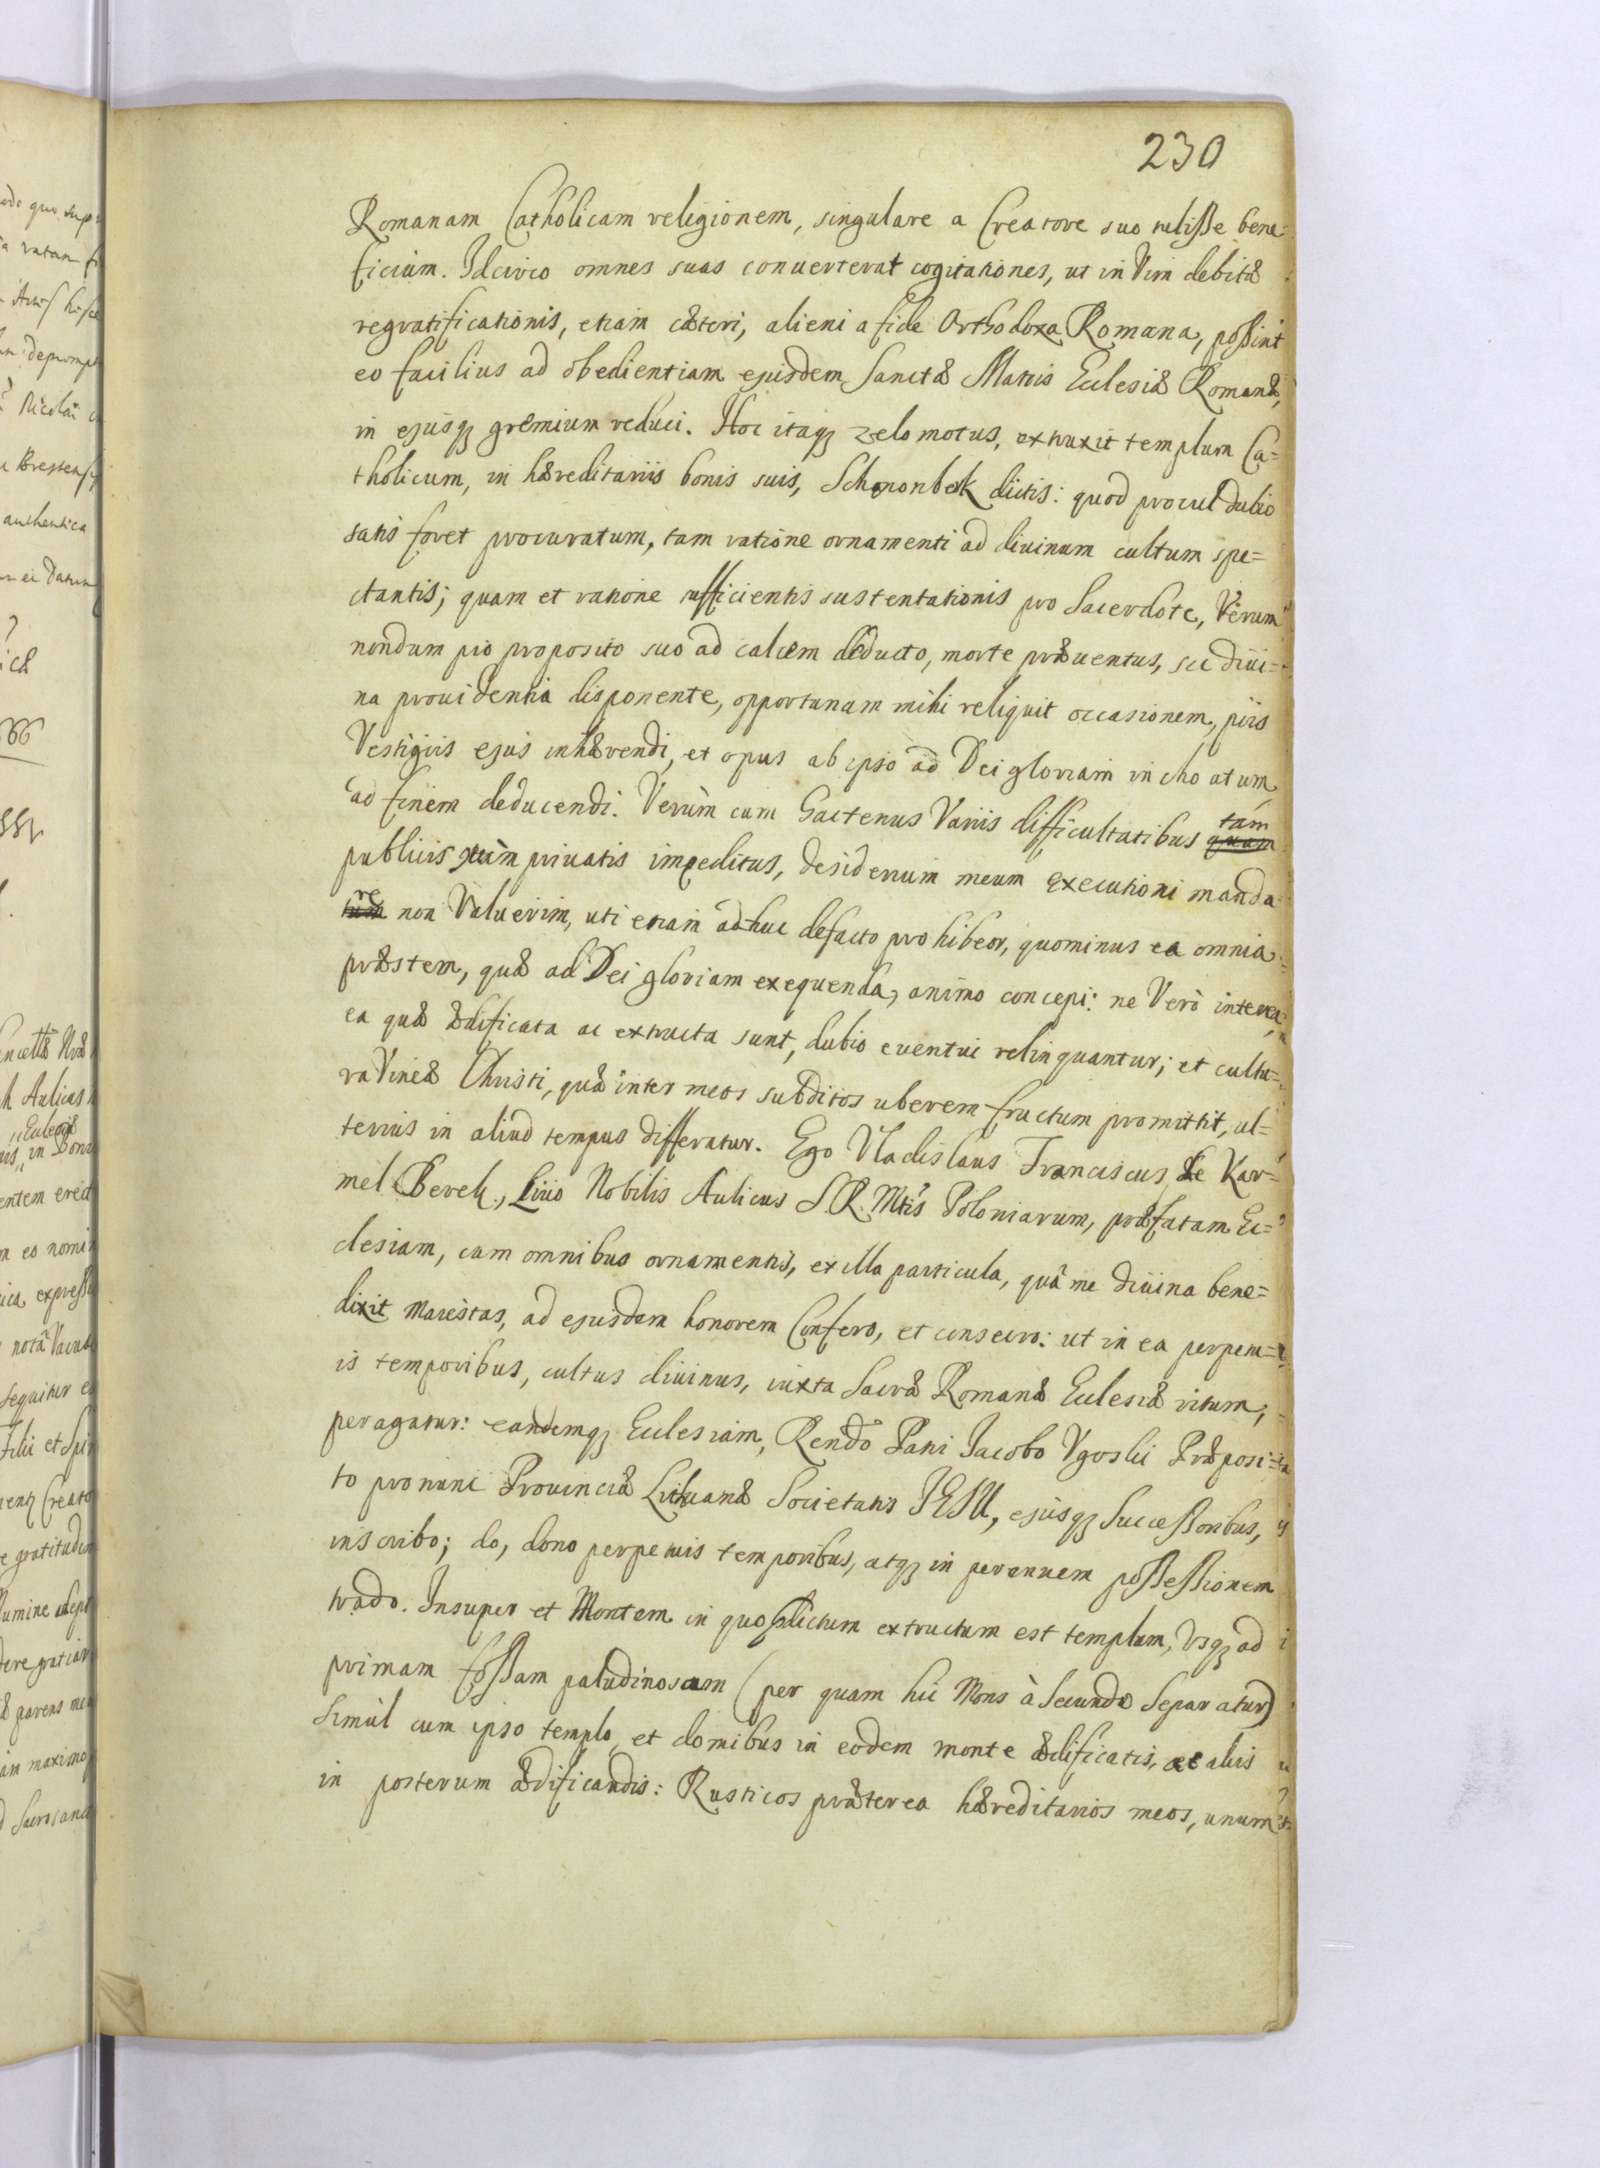 230
Romanam Catholicam religionem, singulare a Creatore suo tulisse bene=
ficium. Idcirco omnes suas conuerterat cogitationes, ut in Vim debitæ
regratificationis, etiam cæteri, alieni a fide Orthodoxa Romana, possint
eo facilius ad obedientiam ejusdem Sanctæ Matris Ecclesiæ Romanæ,
in ejusq gremium reduci. Hoc itaq zelo motus, extruxit templum Ca=
tholicum, in hæreditariis bonis suis, Schononbek dictis: quod procul dubio
satis foret procuratum, tam ratione ornamenti ad diuinum cultum spe=
ctantis; quam et ratione sufficientis sustentationis pro Sacerdote, Verum
nondum pio proposito suo ad calcem deducto, morte præuentus, sic diui=
na prouidentia disponente, opportunam mihi reliquit occasionem, piis
Vestigiis ejus inhærendi, et opus ab ipso ad Dei gloriam inchoatum
ad finem deducendi. Verùm cum hactenus Variis difficultatibus tam quam
publicis quàm priuatis impeditus, desiderium meum executioni manda
re non Valuerim, uti etiam adhuc defacto prohibeor, quominus ea omnia
præstem, quæ ad Dei gloriam exequenda, animo concepi: ne Verò interea,
ea quæ ædificata ac extructa sunt, dubio euentui relinquantur; et cultu=
ra Vineæ Christi, quæ inter meos subditos uberem fructum promittit, ul=
terius in aliud tempus differatur. Ego Vladislaus Franciscus de Kar=
mel Berek, Liuo Nobilis Aulicus S. R. Mtis Poloniarum, præfatam Ec=
clesiam, cum omnibus ornamentis, ex illa particula, quâ me diuina bene=
dixit Maiestas, ad ejusdem honorem Confero, et consecro: ut in ea perpetu=
is temporibus, cultus diuinus, iuxta Sacræ Romanæ Ecclesiæ ritum,
peragatur: eandemq Ecclesiam, Rendo Patri Jacobo Vgoski Præposi=
to pro nunc Prouinciæ Lithuanæ Societatis JESU, ejusq Successoribus,
inscribo; do, dono perpetuis temporibus, atq in perennem possessionem
trado. Insuper et Montem in quo dictum extructum est templum, Vsq ad
primam fossam paludinosam (per quam hic Mons à Secundo Separatur)
Simùl cum ipso templo et domibus in eodem monte ædificatis, ac aliis
in posterum ædificandis: Rusticos præterea hæreditarios meos, unum